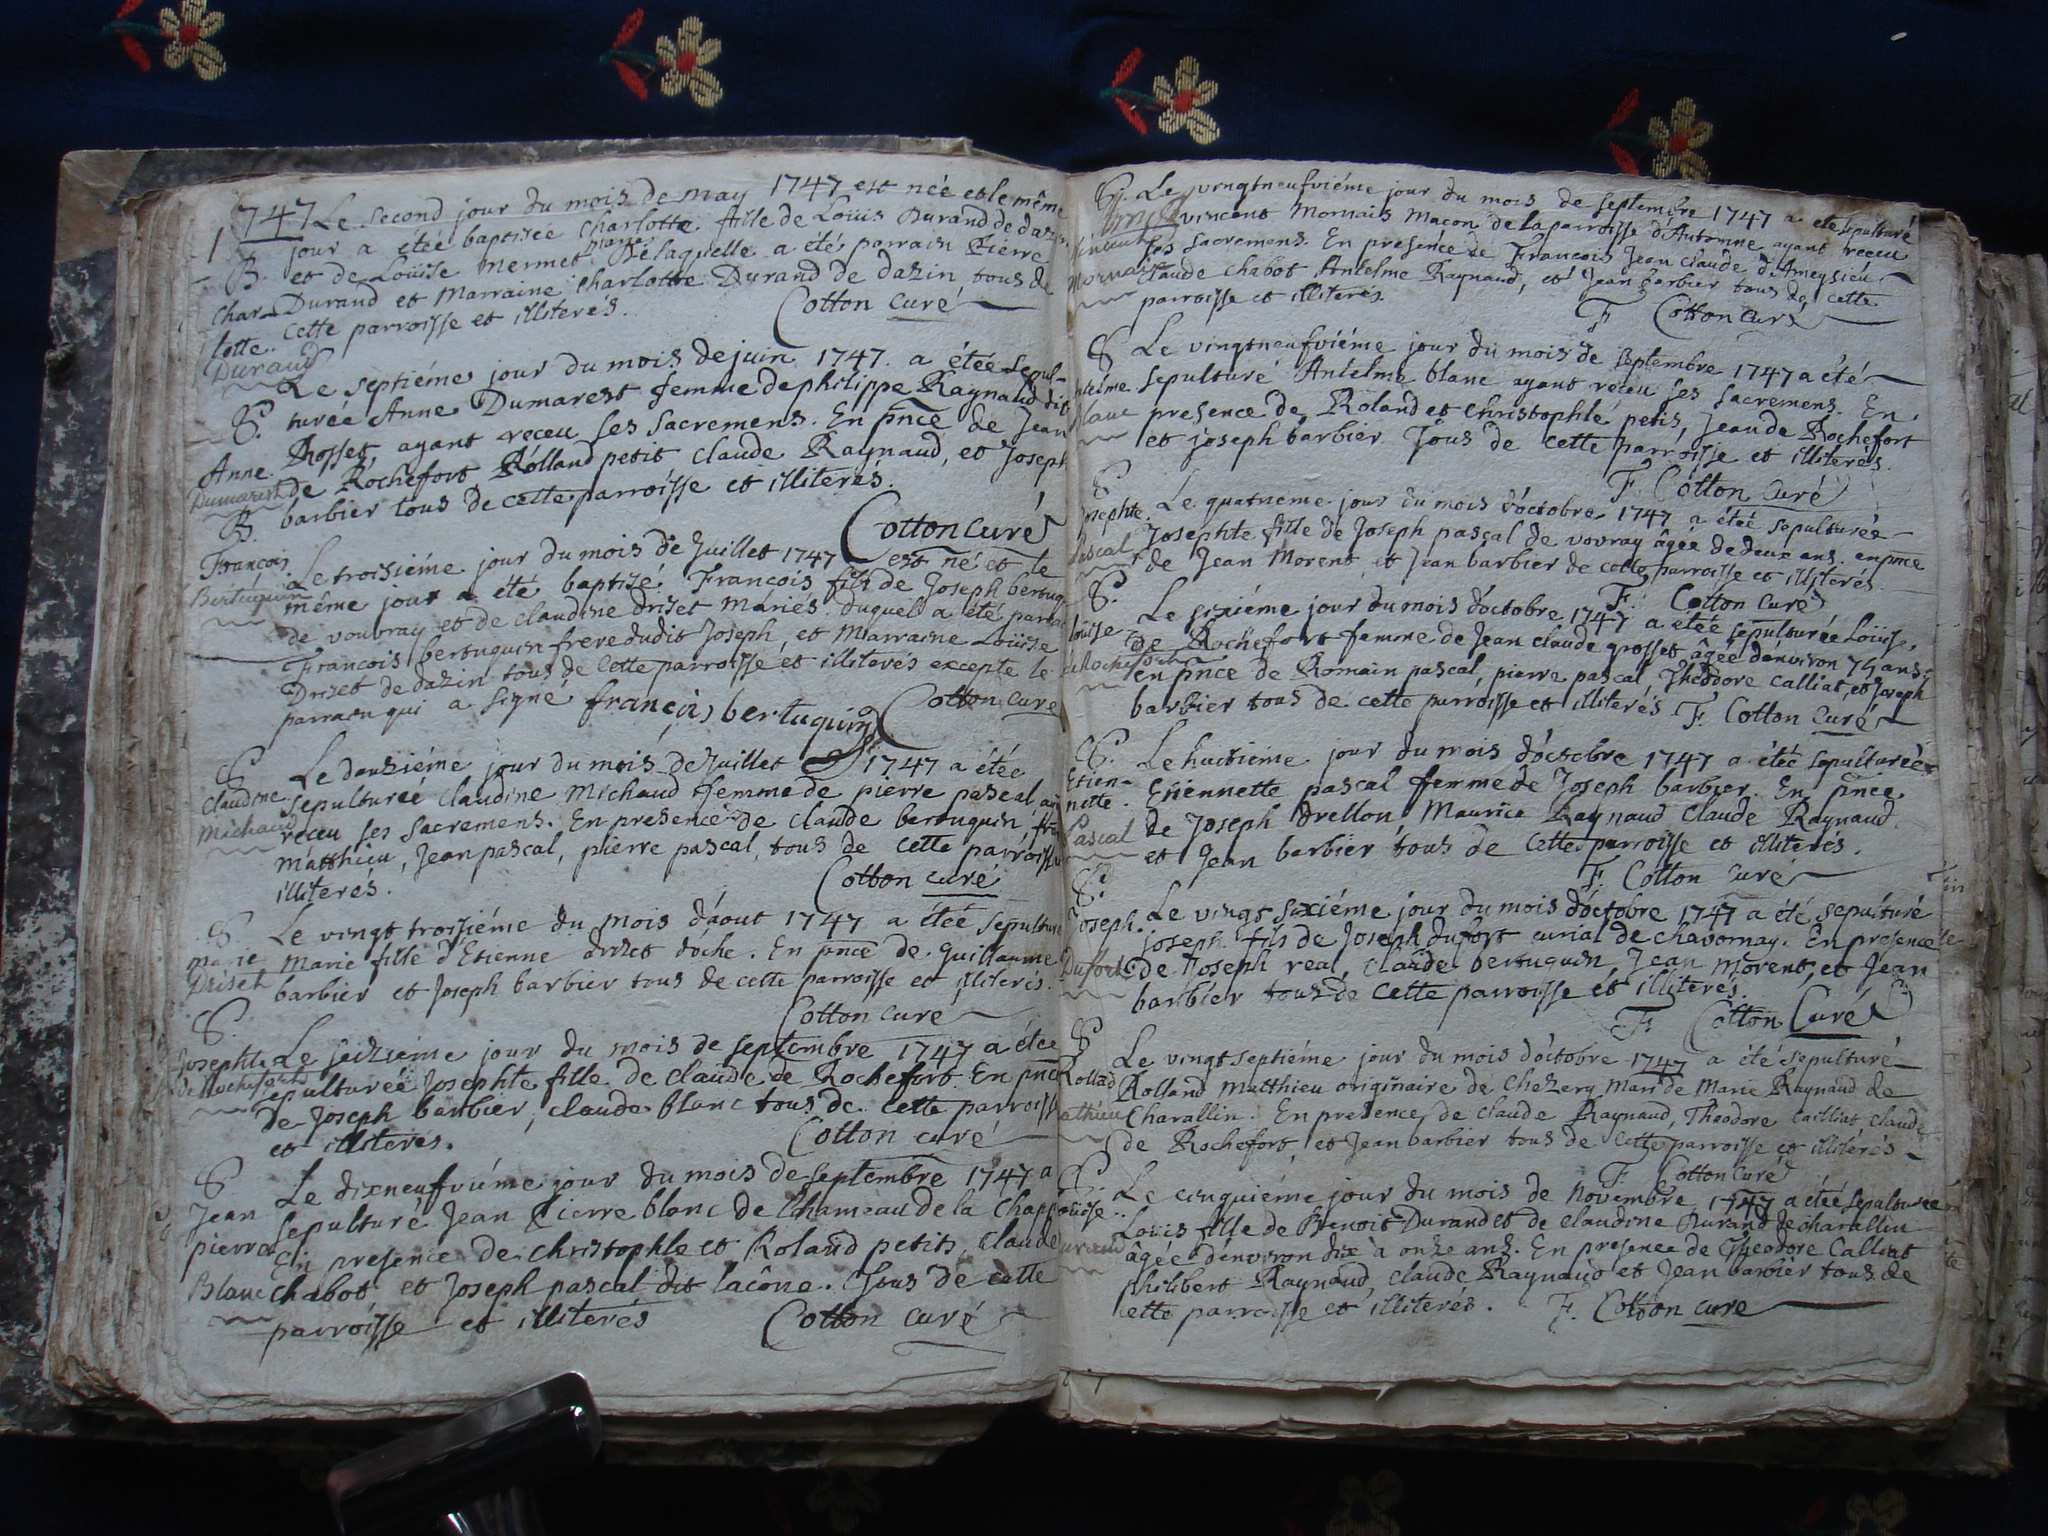 1747 Le second jour du mois de may 1747 est née et le même
B. jour a étée baptisée charlotte fille de Loüis Durand de dazin
et de Loüise mermet mariés De laquelle a étés parrain Pierre
Char- Durand et Marraine charlotte Durand de dazin, tous de
lotte. cette parroisse et illiterés. Cotton curé
Durand
Le septiéme jour du mois de juin 1747. a étée sepul-
S. turée Anne Dumarest femme de philippe Raynaud dit
Anne Rosset, ayant receu ses sacremens. En pnce de Jean
Dumarest de Rochefort, Rolland petit claude Raynaud, et Joseph
B. barbier tous de cette parroisse et illiterés.
Cotton curé
François Le troisiéme jour du mois de Juillet 1747 est né et le
Bertuquin même jour a été baptisé François fils de Joseph bertuq-
de vouvray et de claudine drizet mariés. duquel a été parrain
François bertuquin frere dudit Joseph, et Marraine Loüise
Drizet de dazin tous de cette parroisse et illiterés excepte le
parrain qui a signé françois bertuquin Cotton curé
S. Le douziéme jour du mois de Juillet 1747 a étée
claudine sepulturée claudine Michaud femme de pierre pascal ay
Michaud receu ses sacremens. En presence de claude bertuquin, fra
Matthieu, Jean pascal, pierre pascal, tous de cette parroisse
illiterés. Cotton curé
S. Le vingt troisiéme du mois d'aout 1747 a étée sepulture
marie Marie fille d'Etienne drizet doche. En pnce de guillaume
Driset barbier et Joseph barbier tous de cette parroisse et illiterés.
S. Cotton curé
Josephte Le seiziéme jour du mois de septembre 1747 a étée
de Rochefort sepulturée Josephte fille de claude de Rochefort. En pnce
de Joseph barbier, claude blanc tous de cette parroisse
et illiterés. Cotton curé
S. Le dixneufviéme jour du mois de septembre 1747 a
Jean sepulturé Jean Pierre blanc de l'hameau de la Chap
pierre En presence de christophle et Roland petits, claude
Blanc chabot et Joseph pascal dit lacône. Tous de cette
parroisse et illiterés Cotton curé
S. Le vingtneufviéme jour du mois de septembre 1747 a eté sepulturé
vincent Mornais Macon de la parroisse d'Autonne ayant receu
Mornais ses sacremens. En presence de François Jean claude d'Ameysieu
claude chabot Antelme Raynaud, et Jean barbier tous de cette
parroisse et illiterés. F. Cotton curé
S. Le vingtneufviéme jour du mois de septembre 1747 a été
Antelme sepulturé Antelme blanc ayant receu ses sacremens. En
blanc presence de Roland et christophle petits, Jean de Rochefort
et joseph barbier Tous de cette parroisse et illiterés.
S. F. Cotton curé
Josephte Le quatrieme jour du mois d'octobre 1747 a étée sepulturée
Josephte fille de Joseph pascal de vovray âgée de deux ans. en pnce
Pascal de Jean Morent, et Jean barbier de cette parroisse et illiterés
S. F. Cotton curé
Le sixiéme jour du mois d'octobre 1747 a étée sepulturée Loüise
loüise de Rochefort femme de Jean claude grosset âgée d'environ 75 ans
de Rochefort en pnce de Romain pascal, pierre pascal, Théodore calliat, et Joseph
barbier tous de cette parroisse et illiterés F. Cotton curé
S. Le huitiéme jour du mois d'octobre 1747 a étée sepulturée
Etien- Etiennette pascal femme de Joseph barbier. En pnce
nette. de Joseph drellon, Maurice Raynaud claude Raynaud
Pascal et Jean barbier tous de cette parroisse et illiterés.
S. F. Cotton curé
Joseph. Le vingt sixiéme jour du mois d'octobre 1747 a été sepulturé
joseph fils de Joseph dufort curial de chavornay. En presence
Dufort de Joseph real, claude bertuquin, Jean Morent, et Jean
barbier tous de cette parroisse et illiterés.
F. Cotton Curé
S Le vingt septiéme jour du mois d'octobre 1747 a été sepulturé
Rollad Rolland Matthieu originaire de chezery mari de Marie Raynaud de
mathieu Charallin. En presence de claude Raynaud, Theodore Cailliat claude
de Rochefort, et Jean barbier tous de cette parroisse et illiterés
S. F. Cotton curé
Loüise. Le cinquiéme jour du mois de Novembre 1747 a étée sepulturée
Louis fille de Benoit Durand et de claudine Durand de charallin
durand âgée d'environ dix à onze ans. En presence de Theodore Calliat
philibert Raynaud, claude Raynaud et Jean barbier tous de
cette parroisse et illiterés. F. Cotton curé